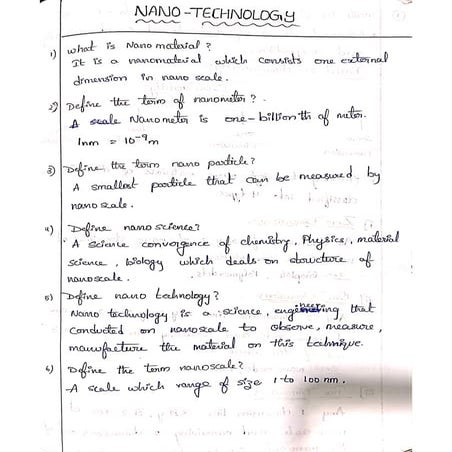 NANO-TECHNOLOGY
1) What is Nano material ?
It is a nanomaterial which consists one external
dimension in nano scale.
2) Define the term of nanometer ?
A scale Nanometer is one-billionth of meter.
1nm = 10⁻⁹m
3) Define the term nano particle?
A smallest particle that can be measured by
nano scale.
4) Define nano science?
A science convergence of chemistry, Physics, material
science, biology which deals on structure of
nanoscale.
5) Define nano technology?
Nano technology is a science, engineering that
conducted on nanoscale to observe, measure,
manufacture the material on this technique.
6) Define the term nanoscale?
A scale which range of size 1 to 100 nm.